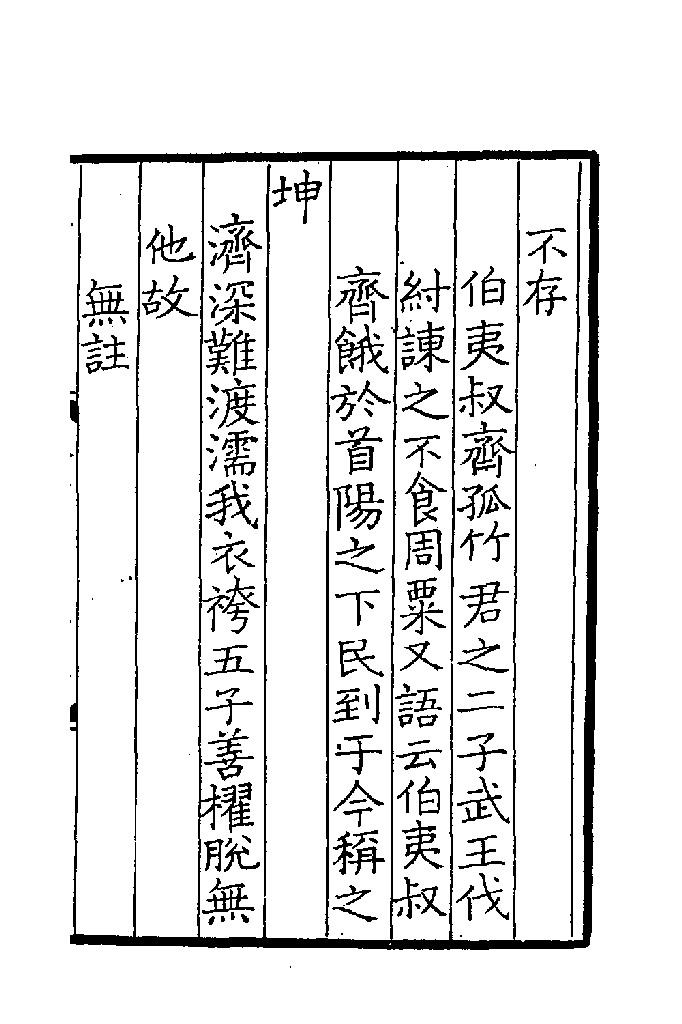 不存
伯夷叔齊孤竹君之二子武王伐
紂諫之不食周粟又語云伯夷叔
齊餓於首陽之下民到于今稱之
坤
濟深難渡濡我衣袴五子善櫂脫無
他故
無註